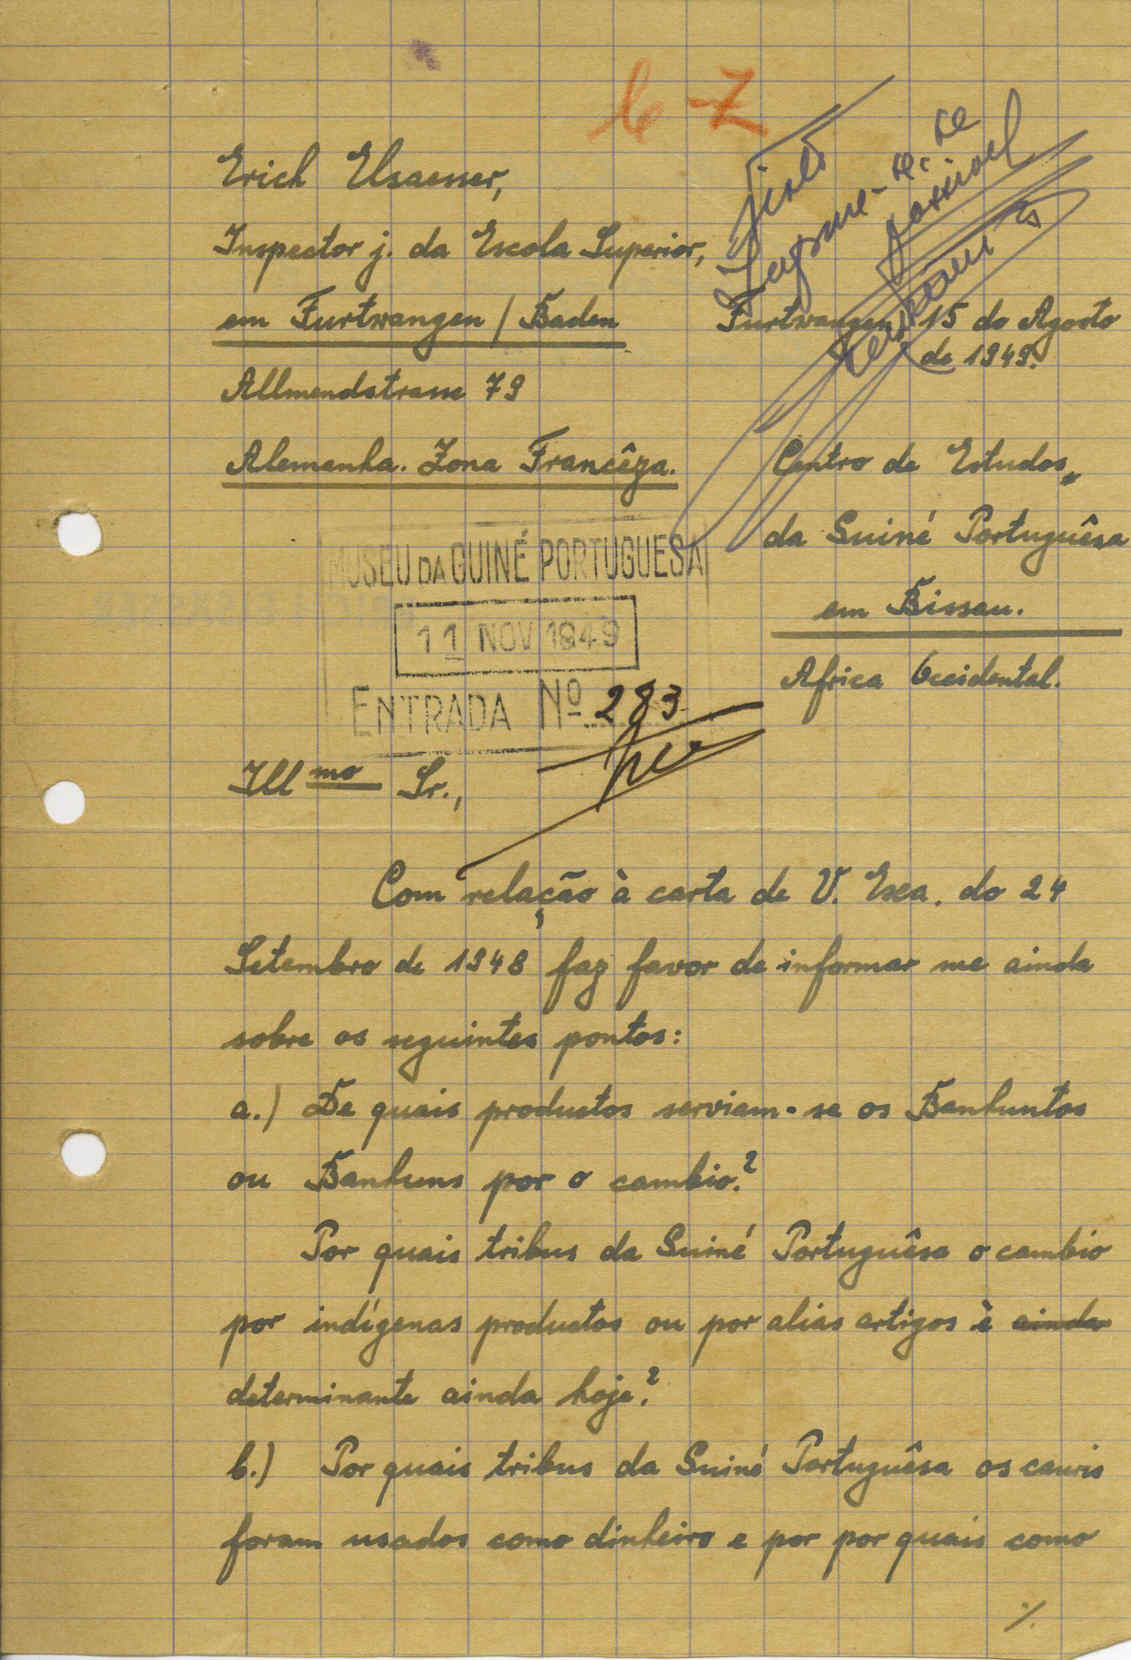 6-Z
Erich Elsaesser,
Inspector j. da Escola Superior,
em Furtwangen / Baden
Allmendstrasse 79
Alemanha. Zona Francêza.
Visto
se
possivel
Furtwangen, 15 do Agosto
de 1949.
Centro de Estudos,
da Guiné Portuguêsa
em Bissau.
Africa Occidental.
MUSEU DA GUINÉ PORTUGUESA
11 NOV 1949
ENTRADA Nº 283
Illmo Sr.,
Com relação à carta de V. Exca. do 24
Setembro de 1948 faz favor de informar me ainda
sobre os seguintes pontos:
a.) De quais productos serviam-se os Banhuntos
ou Banhuns por o cambio?
Por quais tribus da Guiné Portuguêsa o cambio
por indígenas productos ou por alias artigos è ainda
determinante ainda hoje?
b.) Por quais tribus da Guiné Portuguêsa os cauris
foram usados como dinheiro e por por quais como
./.